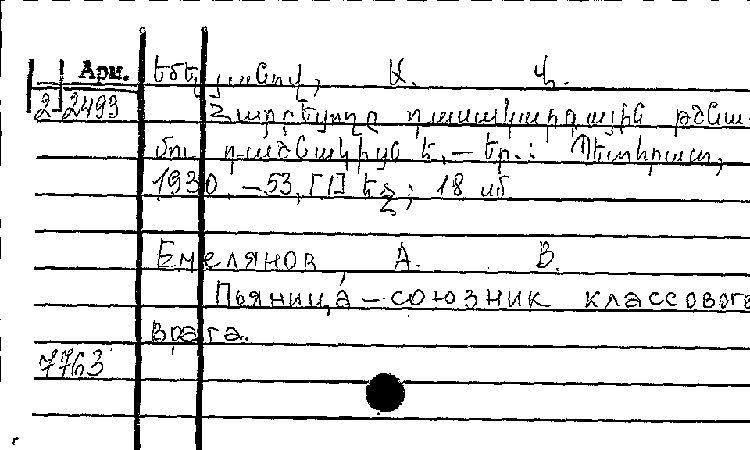 Арм. Եմելյանով, Ա. Վ.
2-2493 Հարբեցողը դասակարգային թշնա-
մու դաշնակիցն է. — Եր.: Պետհրատ,
1930. – 53, [1] եջ; 18 սմ
Емелянов А. В.
Пьяница – союзник классового
врага.
7763